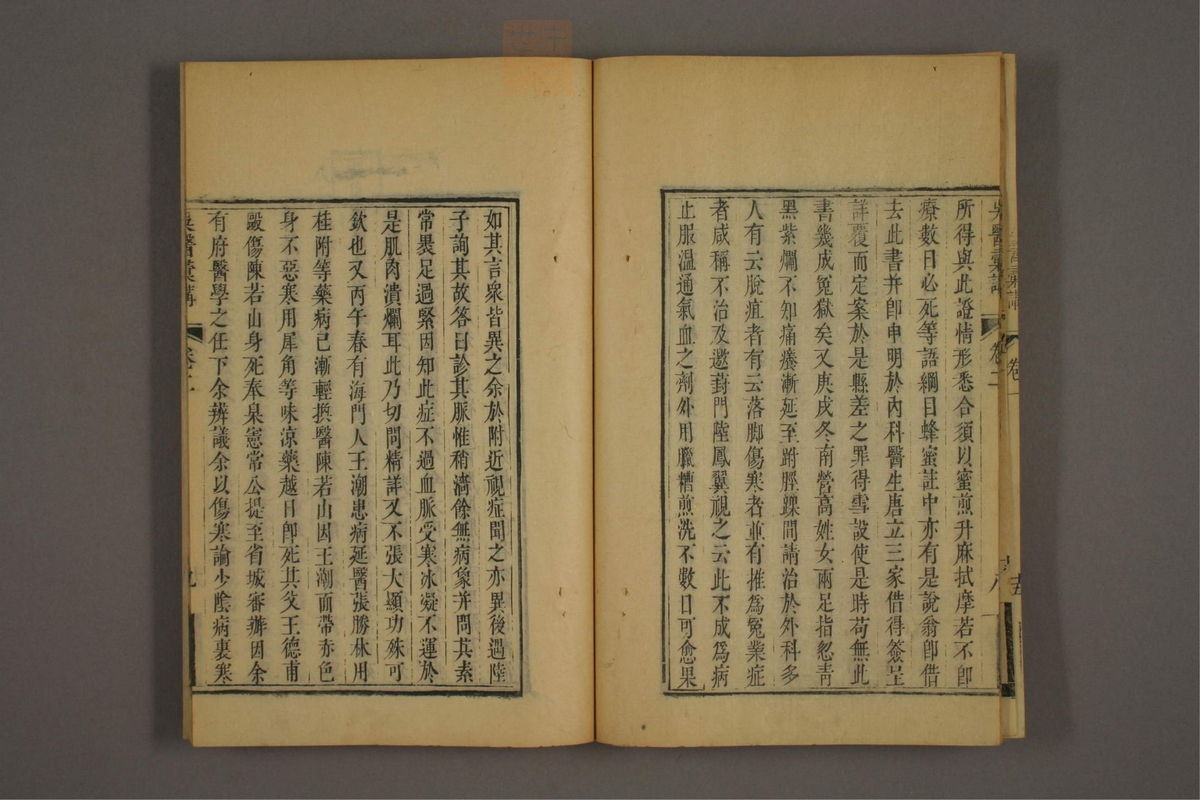 吳醫彙講
卷二
所得與此證情形悉合須以蜜煎升麻拭摩若不即
療數日必死等語綱目蜂蜜註中亦有是說翁即借
去此書并即申明於內科醫生唐立三家借得簽呈
詳覆而定案於是縣差之罪得雪設使是時苟無此
書幾成冤獄矣又庚戌冬南營高姓女兩足指忽青
黑紫爛不知痛癢漸延至跗脛踝間請治於外科多
人有云脫疽者有云落脚傷寒者並有推爲冤業症
者咸稱不治及邀葑門陸鳳翼視之云此不成爲病
止服溫通氣血之劑外用臘糟煎洗不數日可愈果
如其言衆皆異之余於附近視症聞之亦異後遇陸
子詢其故答曰診其脈惟稍濇餘無病象并問其素
常褁足過緊因知此症不過血脈受寒冰凝不運於
是肌肉潰爛耳此乃切問精詳又不張大顯功殊可
欽也又丙午春有海門人王潮患病延醫張勝林用
桂附等藥病已漸輕換醫陳若山因王潮面帶赤色
身不惡寒用犀角等味涼藥越日即死其父王德甫
毆傷陳若山身死奉臬憲常公提至省城審辦因余
有府醫學之任下余辨議余以傷寒論少陰病裏寒
吳醫彙講
卷二
九